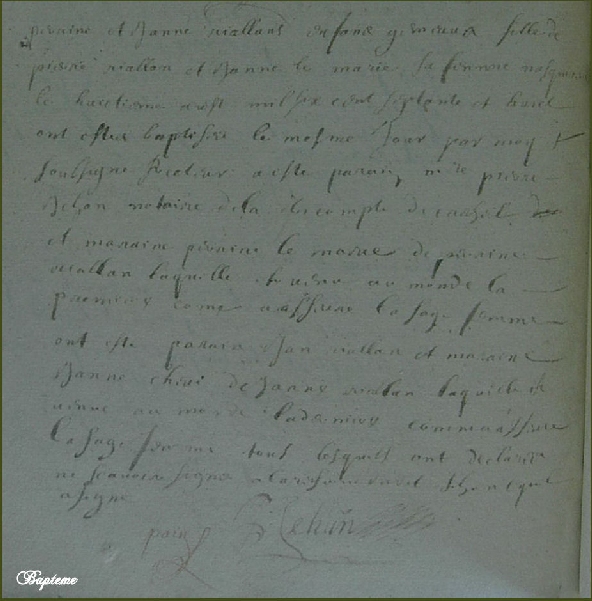 perrine et Janne riallans enfans gemeaux filles de
pierre riallan et Janne le marie sa femme nasquirent
le huictieme aost mil six cent septente et huict
ont estes baptisees le mesme Jour par moy
soubsigne Recteur a este parain m.re pierre
Jehan notaire de la viscompte de
et maraine perrine le marie de perrine
riallan laquelle est venu au monde la
premiere come assure la sage femme
ont este parain Jan riallan et maraine
Janne de Janne riallan laquelle est
venue au monde la derniere comme assure
la sage femme tous lesquels ont declares
ne scavoir signer a la reserve dud. Jehan qui
a signe
P Jehan
Bapteme